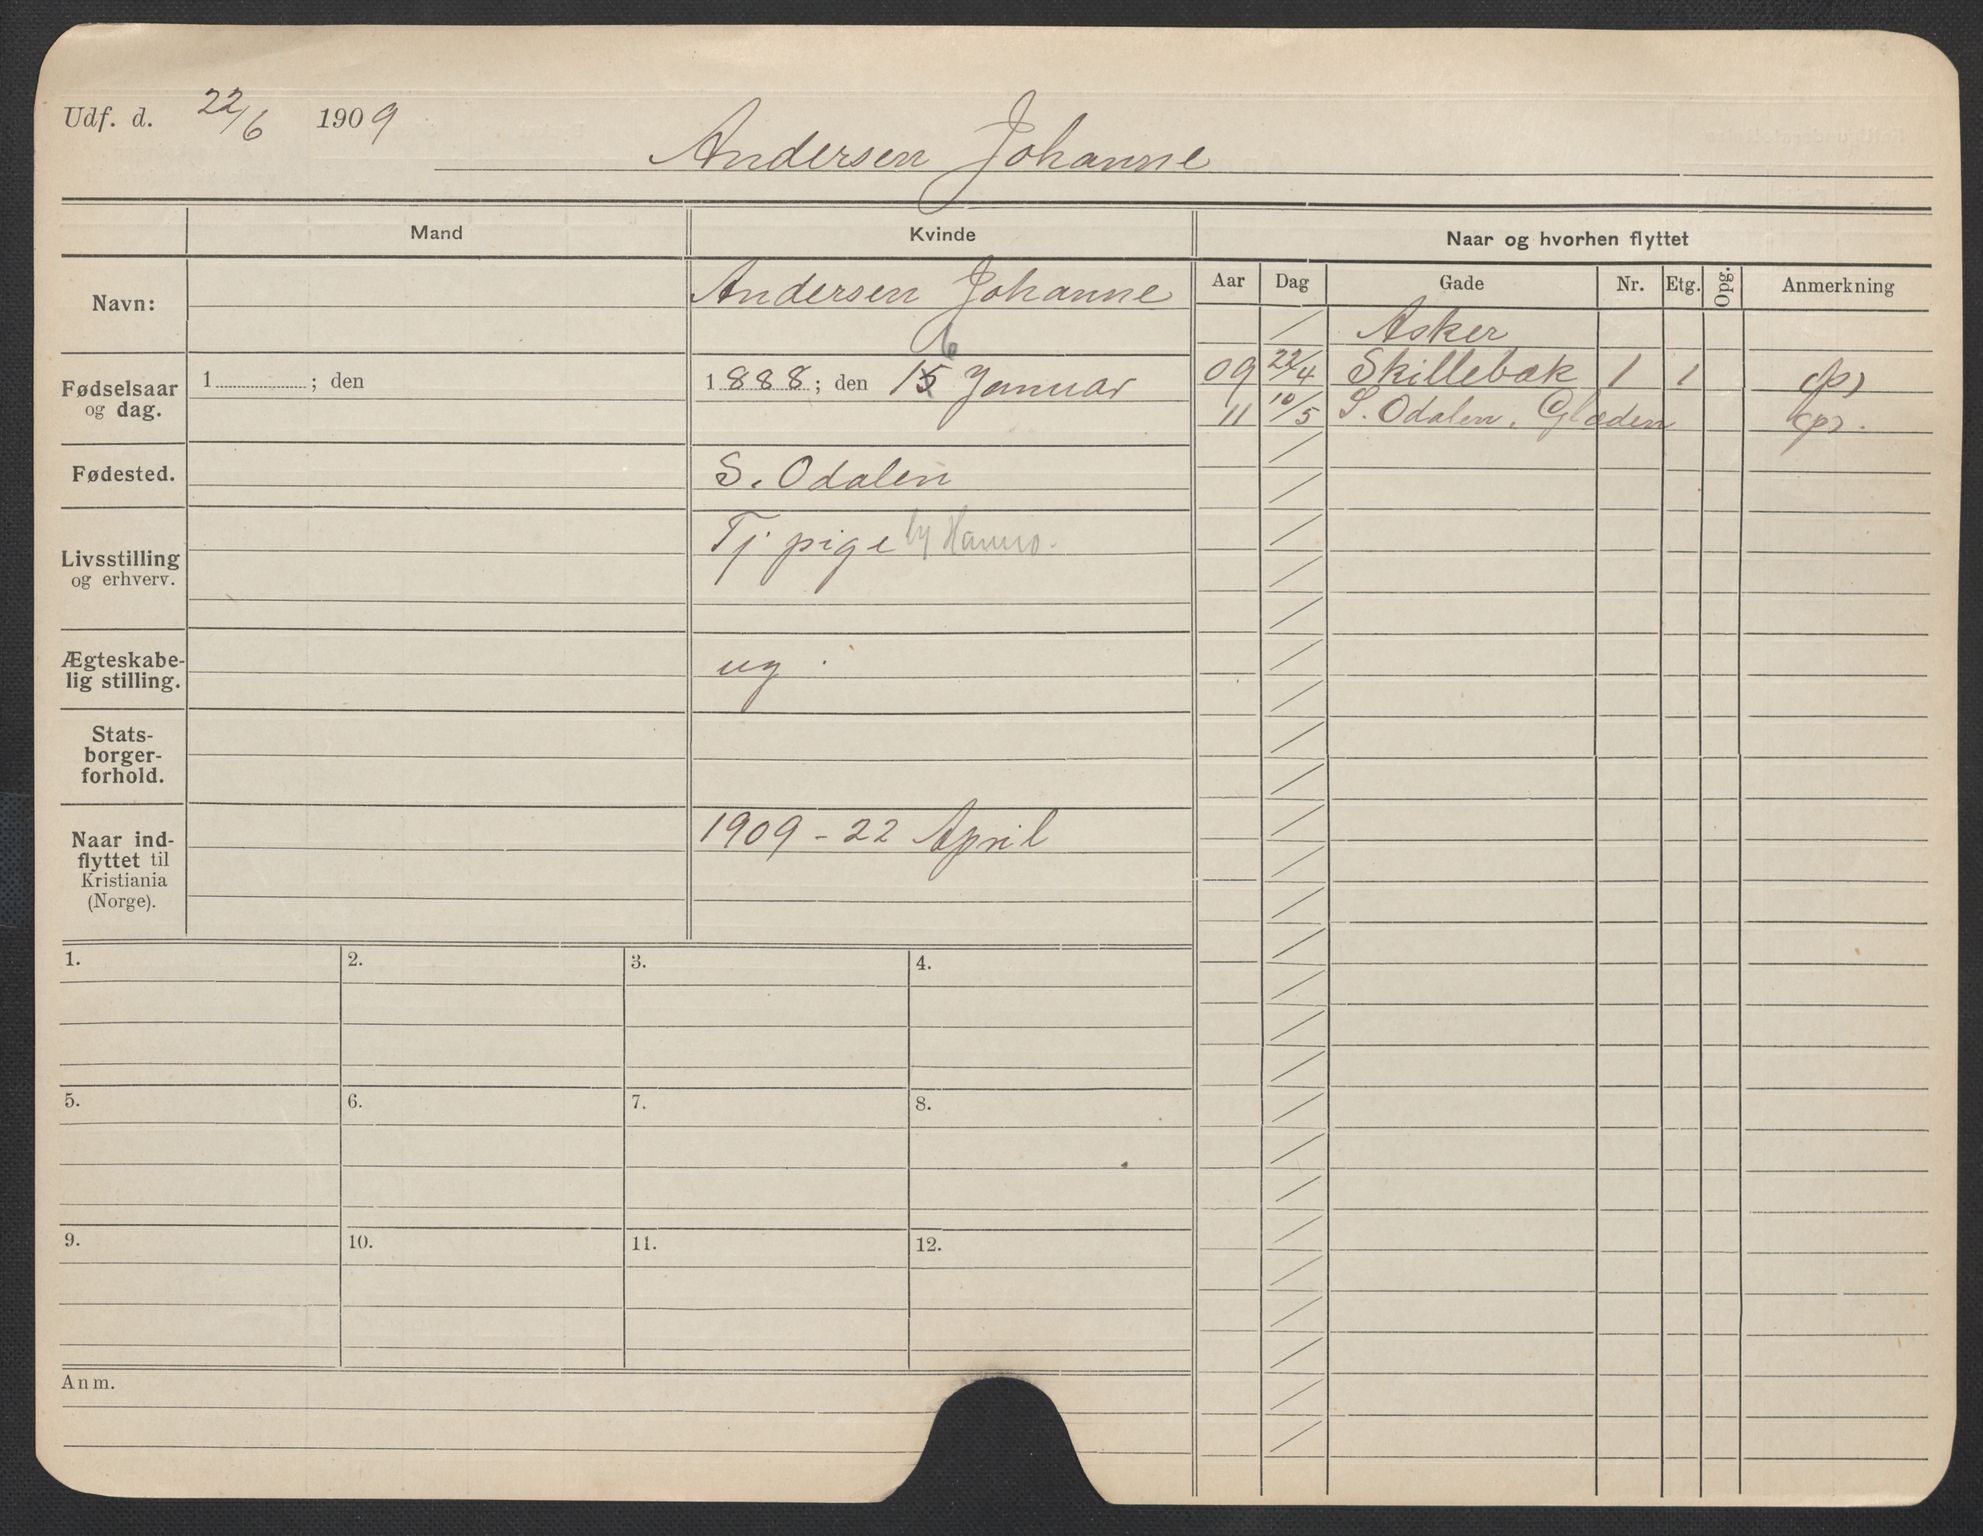 Udf. d. 22/6 1909
Andersen Johanne
Mand Kvinde Naar og hvorhen flyttet
Aar Dag Gade Nr. Etg. Opg. Anmerkning
Navn: Andersen Johanne
6
Fødselsaar og dag. 1 ; den 1888 ; den 15 Januar
Fødested. S. Odalen
Livsstilling og erhverv. Tj. pige
Ægteskabe-
lig stilling. ug.
Stats-
borger-
forhold.
Naar ind-
flyttet til
Kristiania
(Norge). 1909 - 22 April
Asker
09 22/4 Skillebæk 1 1
11 10/5 S. Odalen. Glæden
1. 2. 3. 4.
5. 6. 7. 8.
9. 10. 11. 12.
Anm.